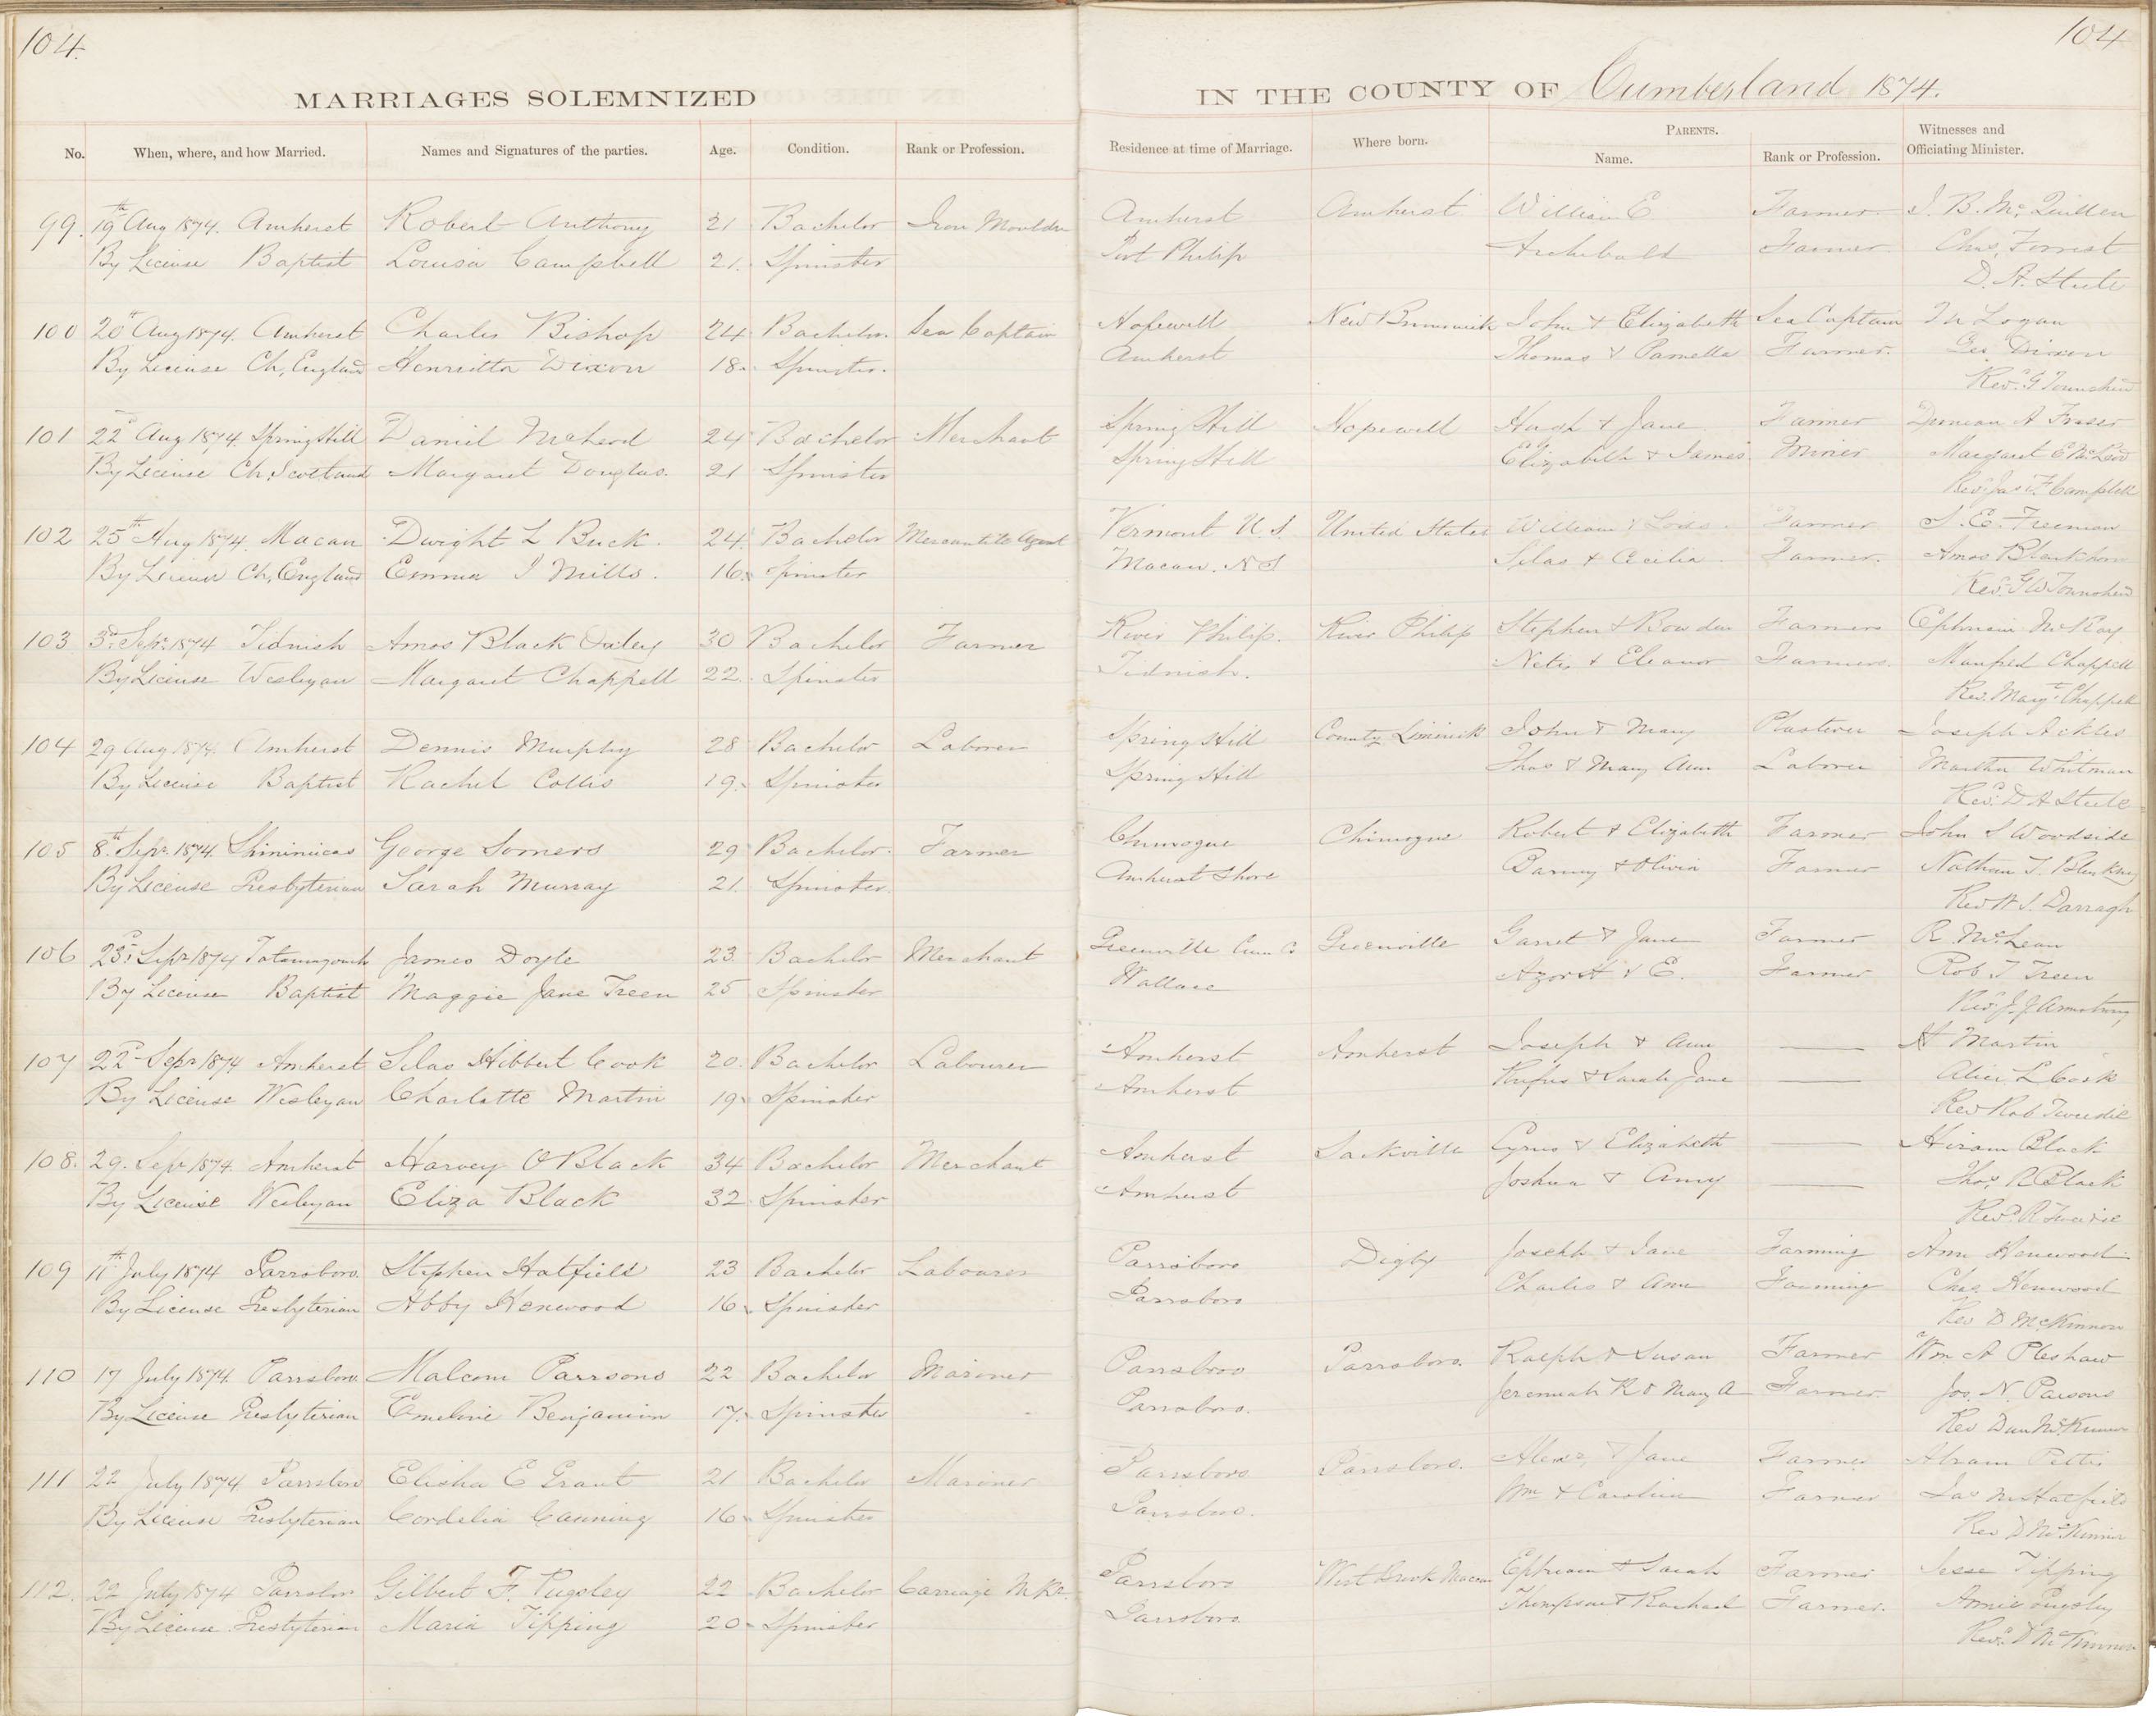 104.
MARRIAGES SOLEMNIZED
No. When, where, and how Married. Names and Signatures of the parties. Age. Condition. Rank or Profession.
99. 19th Aug 1874. Amherst Robert Anthony 21 Bachelor Iron Moulder
By License Baptist Louisa Campbell 21. Spinster
100 20th Aug 1874. Amherst Charles Bishop 24 Bachelor. Sea Captain
By License Ch, England Henrietta Dixon 18. Spinster.
101 22d Aug 1874. Spring Hill Daniel McLeod 24 Bachelor Merchant
By License Ch, Scotland Margaret Douglas. 21 Spinster
102 25th Aug 1874. Macan Dwight L Buck. 24. Bachelor Mercantile Agent
By License Ch, England Emma J Mills. 16. Spinster
103 3d Sepr 1874 Tidnish Amos Black 30 Bachelor Farmer
By License Wesleyan Margaret Chappell 22. Spinster
104 29 Aug 1874. Amherst Dennis Murphy 28 Bachelor Laborer
By License Baptist Rachel Collis 19. Spinster
105 8th Sepr 1874. Shinimicas George Somers 29 Bachelor. Farmer
By License Presbyterian Sarah Murray 21. Spinster.
106 23d Sepr 1874 Tatamagouch James Doyle 23 Bachelor Merchant
By License Baptist Maggie Jane Treen 25 Spinster
107 22d Sepr 1874 Amherst Silas Hibbert Cook 20. Bachelor Labourer
By License Wesleyan Charlotte Martin 19. Spinster
108. 29. Sepr 1874 Amherst Harvey O Black 34 Bachelor Merchant
By License Wesleyan Eliza Black 32 Spinster
109 11th July 1874 Parrsboro. Stephen Hatfield 23 Bachelor Labourer
By License Presbyterian Abby Henwood 16. Spinster
110 17 July 1874. Parrsboro. Malcom Parrsons 22 Bachelor Mariner
By License Presbyterian Emeline Benjamin 17. Spinster
111 22 July 1874 Parrsboro Elisha E Grant 21 Bachelor Mariner
By License Presbyterian Cordelia Canning 16. Spinster
112. 22 July 1874 Parrsboro Gilbert F. Pugsley 22 Bachelor Carriage Mkr.
By License Presbyterian Maria Tipping 20. Spinster
104
IN THE COUNTY OF Cumberland 1874.
Residence at time of Marriage. Where born. PARENTS. Name. Rank or Profession. Witnesses and Officiating Minister.
Amherst Amherst William E Farmer J. B. McQuillen
Port Philip Archibald Farmer Chas, Forrest
D. A. Steele
Hopewell New Brunswick John & Elizabeth Sea Captain Logan
Amherst Thomas & Pamella Farmer. Geo, Dixon
Revd G Townshend
Spring Hill Hopewell Hugh & Jane Farmer Duncan A Fraser
Spring Hill Elizabeth & James Miner Margaret E McLeod
Revd Jas F Campbell
Vermont U.S. United States William & Lois. Farmer S. E. Freeman
Macan. N S Silas & Cecilia Farmer. Amos Blenkhorn
Revd G W Townshend
River Philip. River Philip Stephen & Bowden Farmers Ephraim McKay
Tidnish. & Eleanor Farmers. Manfred Chappell
Rev. Margt Chappell
Spring Hill County Limerick John & Mary Plasterer Joseph Ackles
Spring Hill Thos & Mary Ann Laborer Martha Whitman
Revd D A Steele
Chimogue Chimogue Robert & Elizabeth Farmer John S Woodside
Amherst Shore Barney & Olivia Farmer Nathan T.
Rev W S. Darragh
Greenville Cum Co Greenville Garret & Jane Farmer R McLean
Wallace Azor A & E. Farmer Rob T Treen
Revd J. J Armstrong
Amherst Amherst Joseph & Ann A Martin
Amherst Rufus & Sarah Jane Alice L Cook
Rev Rob Tweedie
Amherst Sackville Cyrus & Elizabeth Hiram Black
Amherst Joshua & Amy Thos, R Black
Revd R Tweedie
Parrsboro Digby Joseph & Jane Farming Ann Henwood
Parrsboro Charles & Ann Farming Chas, Henwood
Rev D McKinnon
Parrsboro Parrsboro. Ralph & Susan Farmer Wm A Pleshaw
Parrsboro. Jeremiah R & Mary A Farmer Jos. N. Parsons
Rev Dun McKinnon
Parrsboro Parrsboro. Alexr, & Jane Farmer Abram Pettis
Parrsboro. Wm & Caroline Farmer Jas Hatfield
Rev D McKinnon
Parrsboro West Brook Macan Ephraim & Sarah Farmer Jesse Tipping
Parrsboro Thompson & Rachael Farmer. Annie Pugsley
Revd D McKinnon